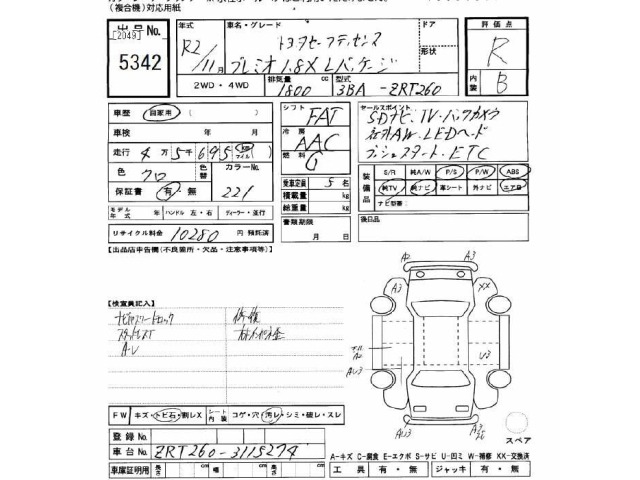 (複合機)対応用紙
出品No. [2049] 5342
年式 R2/11月
車名・グレード トヨタセーフティセンス プレミオ 1.8X Lパッケージ
ドア 形状
評価点 R
内装 B
2WD・4WD
排気量 1800 cc
型式 3BA-ZRT260
車歴 自家用 ( )
車検 年 月
走行 4万5千695 km マイル
色 クロ 色替 カラーNo. 221
保証書 有・無
モデル年式 年 ハンドル 左・右 ディーラー・並行
リサイクル料金 10280 円 預託済
シフト FAT
冷房 AAC
燃料 G
乗車定員 5 名
積載量 kg
総重量 kg
書類期限
月 日
セールスポイント
SDナビ・TV・バックカメラ
社外AW・LEDヘッド
プッシュスタート・ETC
装備品 S/R 純A/W P/S P/W ABS
純TV 純ナビ 革シート 外ナビ エアB
ナビ型番:
後日品
【出品店申告欄(不良箇所・欠品・注意事項等)】
【検査員記入】
A2 A3
A3 XX
A2 U3
AU3 A3
AU3 A3
FW キズ・トビ石・割レX シート内装 コゲ・穴・汚レ・シミ・破レ・スレ
登録No.
車台No. ZRT260-3115274
車庫証明用 長さ cm 幅 cm 高さ cm
スペア
A-キズ C-腐食 E-エクボ S-サビ U-凹ミ W-補修 XX-交換済
工具 有・無 ジャッキ 有・無